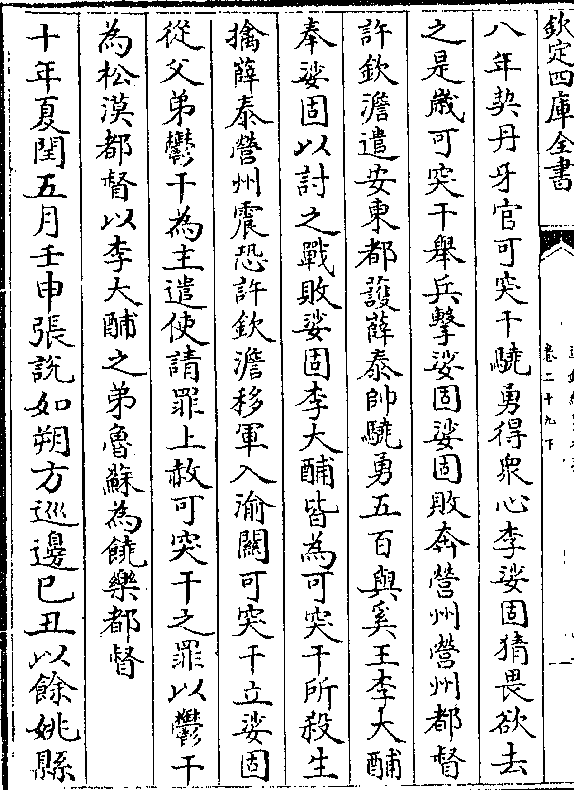 欽定四庫全書
卷二十九下
八年契丹牙官可突干驍勇得衆心李娑固猜畏欲去
之是歲可突干舉兵擊娑固娑固敗奔營州營州都督
許欽澹遣安東都護薛泰帥驍勇五百與奚王李大酺
奉娑固以討之戰敗娑固李大酺皆為可突干所殺生
擒薛泰營州震恐許欽澹移軍入渝關可突干立娑固
從父弟鬱干為主遣使請罪上赦可突干之罪以鬱干
為松漠都督以李大酺之弟魯蘇為饒樂都督
十年夏閏五月壬申張說如朔方巡邊已丑以餘姚縣